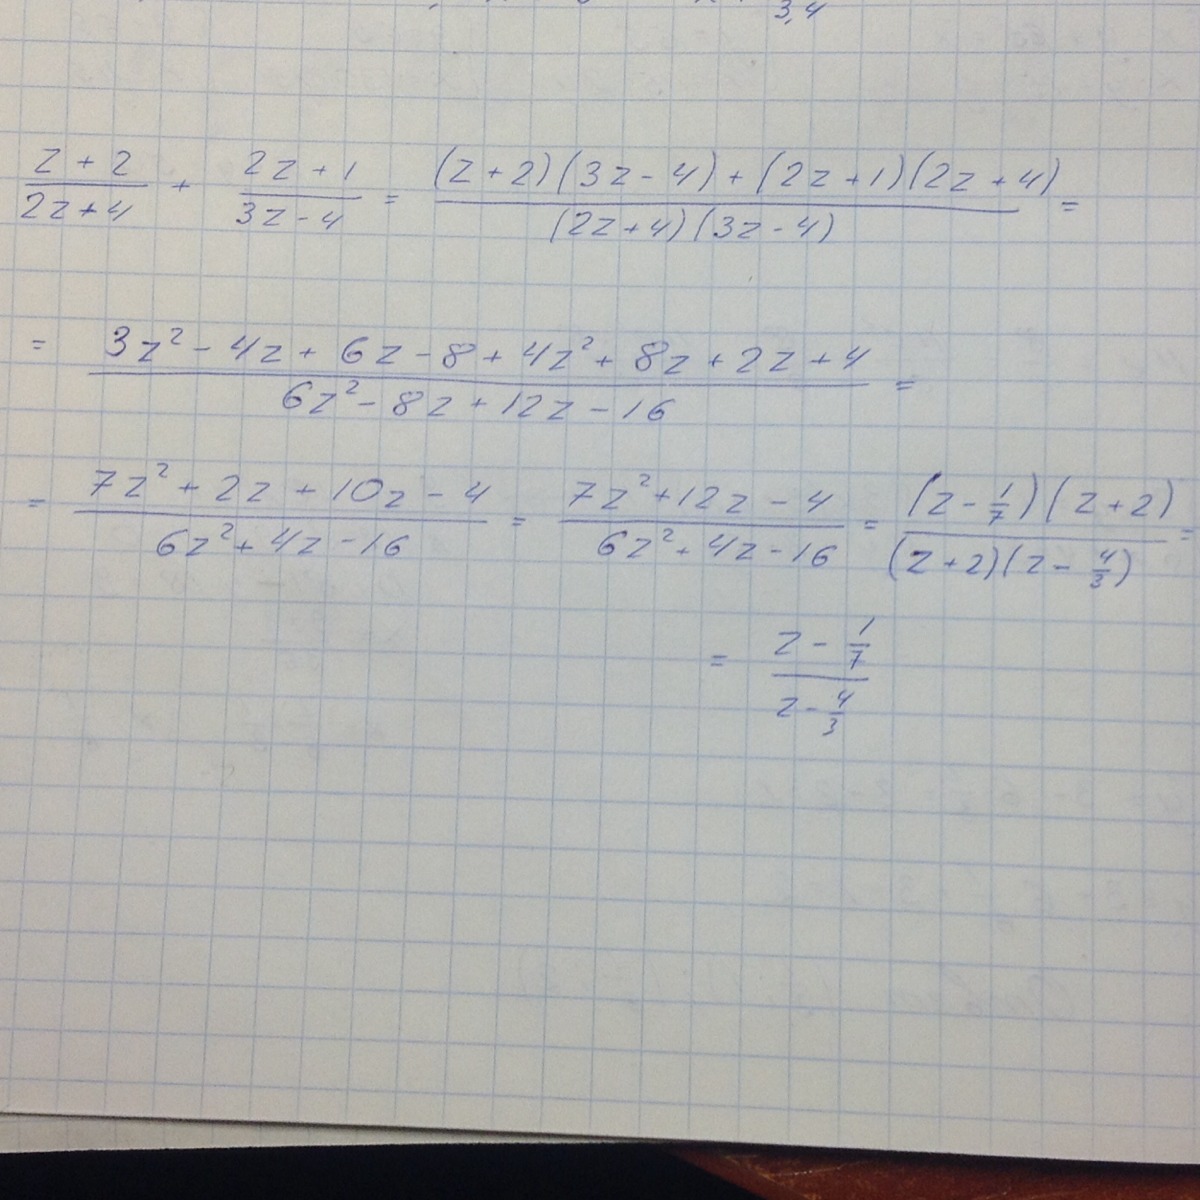 3,4
(z + 2)/(2z + 4) + (2z + 1)/(3z - 4) = ((z + 2)(3z - 4) + (2z + 1)(2z + 4))/((2z + 4)(3z - 4)) =
= (3z² - 4z + 6z - 8 + 4z² + 8z + 2z + 4)/(6z² - 8z + 12z - 16) =
= (7z² + 2z + 10z - 4)/(6z² + 4z - 16) = (7z² + 12z - 4)/(6z² + 4z - 16) = ((z - 1/7)(z + 2))/((z + 2)(z - 4/3)) =
= (z - 1/7)/(z - 4/3)